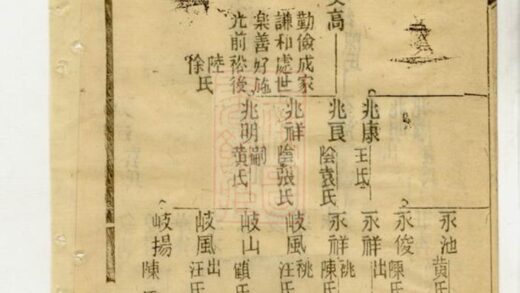 高
勤儉成家
謙和處世
樂善好施
光前裕後
陸
徐氏
兆康
王氏
兆良
陰袁氏
兆祥
陰張氏
兆明
嗣
黃氏
永池
黄氏
永俊
陳氏
永祥
出
永祥
祧
陳氏
岐風
祧
汪氏
岐山
顧氏
岐風
出
汪氏
岐揚
陳